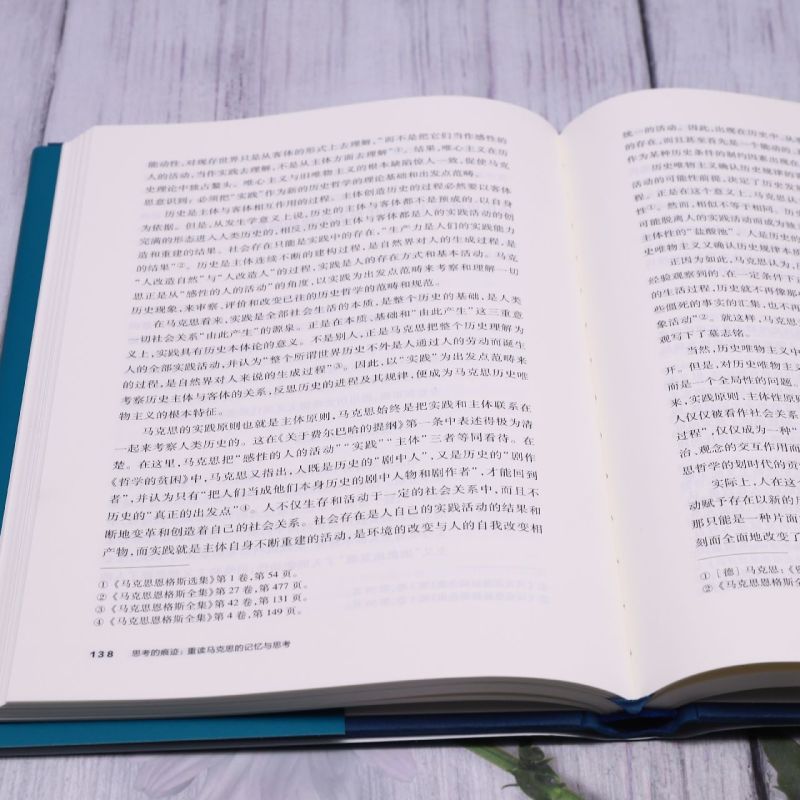 能动性，对现存世界只是从客体的形式上去理解，“而不是把它们当作感性的
人的活动，当作实践去理解，不是从主体方面去理解”①。结果，唯心主义在历
史理论中独占鳌头。唯心主义与旧唯物主义的根本缺陷惊人一致，促使马克
思意识到：必须把“实践”作为新的历史哲学的理论基础和出发点范畴。
历史是主体与客体相互作用的过程。主体创造历史的过程必然要以客体
为依据。但是，从发生学意义上说，历史的主体与客体都不是预成的，以自身
完满的形态进入人类历史的，相反，历史的主体与客体都是人的实践活动的创
造和重建的结果。社会存在只能是实践中的存在，“生产力是人们的实践能力
的结果”②。历史是主体连续不断的建构过程，是自然界对人的生成过程，是
“人改造自然”与“人改造人”的过程，实践是人的存在方式和基本活动。马克
思正是从“感性的人的活动”的角度，以实践为出发点范畴来考察和理解一切
历史现象，来审察、评价和改变已往的历史哲学的范畴和规范。
在马克思看来，实践是全部社会生活的本质，是整个历史的基础，是人类
一切社会关系“由此产生”的源泉。正是在本质、基础和“由此产生”这三重意
义上，实践具有历史本体论的意义。不是别人，正是马克思把整个历史理解为
人的全部实践活动，并认为“整个所谓世界历史不外是人通过人的劳动而诞生
的过程，是自然界对人来说的生成过程”③。因此，以“实践”为出发点范畴来
考察历史主体与客体的关系，反思历史的进程及其规律，便成为马克思历史唯
物主义的根本特征。
马克思的实践原则也就是主体原则，马克思始终是把实践和主体联系在
一起来考察人类历史的。这在《关于费尔巴哈的提纲》第一条中表述得极为清
楚。在这里，马克思把“感性的人的活动”“实践”“主体”三者等同看待。在
《哲学的贫困》中，马克思又指出，人既是历史的“剧中人”，又是历史的“剧作
者”，并认为只有“把人们当成他们本身历史的剧中人物和剧作者”，才能回到
历史的“真正的出发点”④。人不仅生存和活动于一定的社会关系中，而且不
断地变革和创造着自己的社会关系。社会存在是人自己的实践活动的结果和
产物，而实践就是主体自身不断重建的活动，是环境的改变与人的自我改变相
① 《马克思恩格斯选集》第 1 卷，第 54 页。
② 《马克思恩格斯全集》第 27 卷，第 477 页。
③ 《马克思恩格斯全集》第 42 卷，第 131 页。
④ 《马克思恩格斯全集》第 4 卷，第 149 页。
138 思考的痕迹：重读马克思的记忆与思考
统一的活动。因此，出现在历史中，从
的存在，而且甚至首先是一个能动的、
作为某种历史条件的制约因素出现在
历史唯物主义确认历史规律的
活动的可能性前提，决定了历史发
程。正是在这个意义上，马克思认
性①。然而，相似不等于相同。历史
可能脱离人的实践活动而成为独
主体性的“盐酸池”。人是历史的
史唯物主义又确认历史规律本质
正因为如此，马克思认为，
经验观察到的、在一定条件下
的生活过程，历史就不再像那
些僵死的事实的汇集，也不再
象活动”②。就这样，马克思
观写下了墓志铭。
当然，历史唯物主义中
开。但是，对历史唯物主
而是一个全局性的问题。
来，实践原则、主体性原则
人仅仅被看作社会关系
过程”，仅仅成为一种“
治、观念的交互作用而
思哲学的划时代的贡
实际上，人在这个
动赋予存在以新的
那只能是一种片面
刻而全面地改变了
① ［德］马克思：《
② 《马克思恩格斯